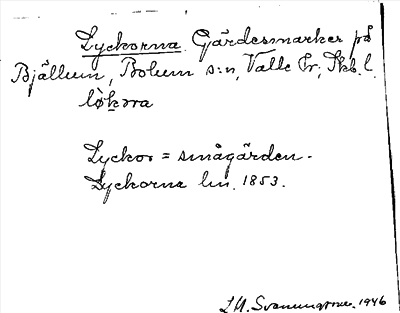 Lyckorna. Gärdesmarker på
Bjällum, Bolum s:n, Valle hr; Skb. l.
lø̀kɔra
Lyckor = smågärden.
Lyckorna lm. 1853.
1946